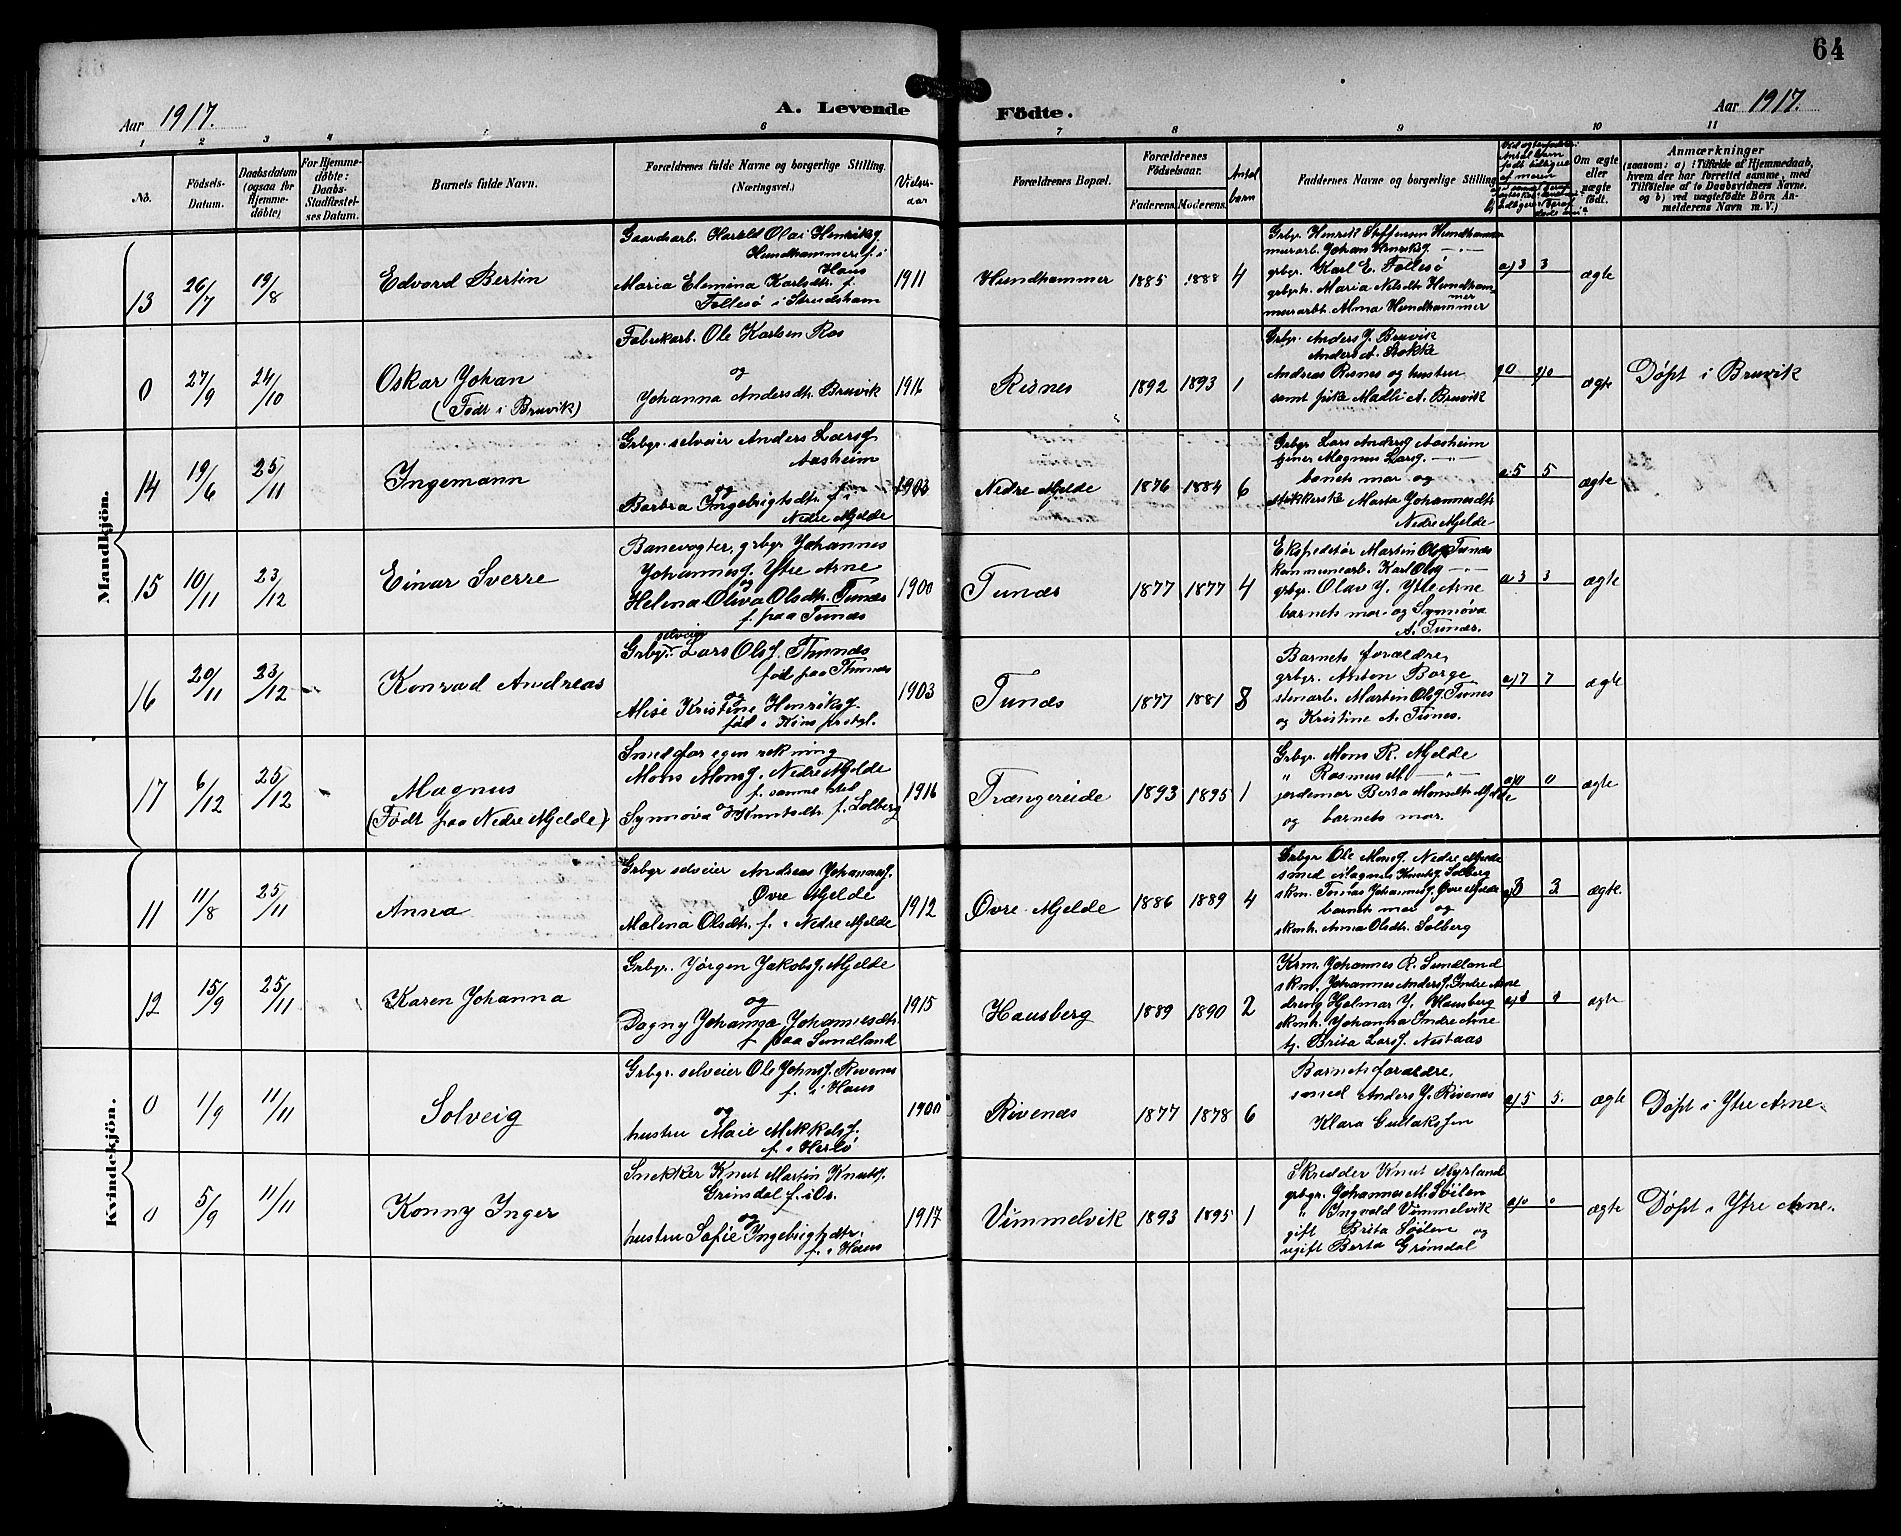 64
Aar 1917.
A. Levende
Födte.
Aar 1917.
1 2 3 4 5 6 7 8 9 10 11
No.
Födsels-Datum.
Daabsdatum (ogsaa for Hjemme-döbte)
For Hjemme-döbte: Daabs-Stadfæstel-ses Datum.
Barnets fulde Navn.
Forældrenes fulde Navne og borgerlige Stilling. (Næringsvei.)
Vielses-aar
Forældrenes Bopæl.
Forældrenes Födselsaar.
Faderens. Moderens.
Antal børn
Faddernes Navne og borgerlige Stilling
Om ægte eller uægte födt.
Anmærkninger
(saasom: a) i Tilfælde af Hjemmedaab, hvem der har forrettet samme, med Tilföielse af to Daabsvidners Navne, og b) ved uægtefödte Börn An-melderens Navn m. V.)
Mandkjön.
13 26/7 19/8 Edvard Bertin
Gaardsarb. Harald Olai Henriksg.
Hundhammer f. i
Haus
Maria Elemina Karlsdtr. f.
Follesø i Strudsham
1911 Hundhammer 1885 1888 4
Grbgr. Henrik Steffensen Hundhammer
murarb. Johan Henriksg. — " —
grbgr. Karl E. Follesø
grbgrh. Maria Nilsdtr. Hundham-
mer
murarbh. Alma Hundhammer
a) 3 3 ægte
0 27/9 24/10 Oskar Johan
(Født i Bruvik)
Fabrikarb. Ole Karlsen Ros
og
Johanna Andersdtr. Bruvik
1916 Risnes 1892 1893 1
Grbgr. Anders J. Bruvik
Anders A. Stokke
Andreas Risnes og hustru
samt pike Madli A. Bruvik
a) 0 0 ægte Døpt i Bruvik
14 19/6 25/11 Ingemann
Grbgr. selveier Anders Larsg.
Aasheim
og
Barbra Ingebrigtsdtr. f. i
Nedre Mjelde
1903 Nedre Mjelde 1876 1884 6
Grbgr Lars Andersg Aasheim
tjener Magnus Larsg. — " —
barnets mor og
Marta Johannesdtr.
Nedre Mjelde
a) 5 5 ægte
15 10/11 23/12 Einar Sverre
Banevogter, grbgr Johannes
Johannesg. Ytre Arne
og
Helena Oliva Olsdtr. Tunæs
f. paa Tunæs
1900 Tunæs 1877 1877 4
Ekspeditør Martin Olsg Tunæs
kommunearb. Karl Olsg — " —
grbgr. Olav J. Ytre Arne
barnets mor og Synnøva
A. Tunæs.
a) 3 3 ægte
16 20/11 23/12 Konrad Andreas
selveier
Grbgr. Lars Olsg. Thunæs
fød paa Thunæs
og
Alise Kristine Henriksg.
fød i Kins prstgl.
1903 Tunæs 1877 1881 8
Barnets forældre,
grbgr. Anton Borge
stenarb. Martin Olsg. Tunes
og Kristine A. Tunes.
a) 7 7 ægte
17 6/12 25/12 Magnus
(Født paa Nedre Mjelde)
Smed for egen rekning
Mons Monsg. Nedre Mjelde
f. samme sted
og
Synnøva Knutsdtr. f. Solberg
1916 Trængereide 1893 1895 1
Grbgr. Mons R. Mjelde
" Rasmus M. — " —
jordemor Berta Monsdtr. Mjelde
og barnets mor.
a) 0 0 ægte
Kvindekjön.
11 11/8 25/11 Anna
Grbgr selveier Andreas Johannesg.
Øvre Mjelde
Malena Olsdtr. f. i Nedre Mjelde
1912 Øvre Mjelde 1886 1889 4
Grbgr Ole Monsg. Nedre Mjelde
smed Magnus Knutsg. Solberg
skm. Tomas Johannesg. Øvre Mjelde
barnets mor og
skmh. Anna Olsdtr. Solberg
a) 3 3 ægte
12 15/9 25/11 Karen Johanna
Grbgr. Jørgen Jakobsg. Mjelde
og
Dagny Johanna Johannesdtr.
f. paa Sundland
1915 Hausberg 1889 1890 2
Krm. Johannes R. Sundland
skm. Johannes Andersg. Indre Arne
dreng Hjalmar J. Hausberg
skmh. Johanna Indre Arne
tj. Brita Larsg. Nestaas
ægte
0 1/9 11/11 Solveig
Grbgr. selveier Ole Johnsg. Rivenes
f. i Haus
og
hustru Maie Mikkelsg.
f. i Herlø
1900 Rivenæs 1877 1878 6
Barnets forældre,
smed Anders J. Rivenæs
Klara Gullaksen
a) 5 5. ægte Døpt i Ytre Arne.
0 5/9 11/11 Konny Inger
Snekker Knut Martin Knutsg.
Grimdal f. i Os.
og
hustru Sofie Ingebrigtsdtr.
f. i Haus
1917 Vimmelvik 1893 1895 1
Skrædder Knut Myrland
grbgr. Johannes M. Søilen
" Ingvald Vimmelvik
gift Brita Søilen og
ugift Berta Grimdal
a) 0 0 ægte Døpt i Ytre Arne.